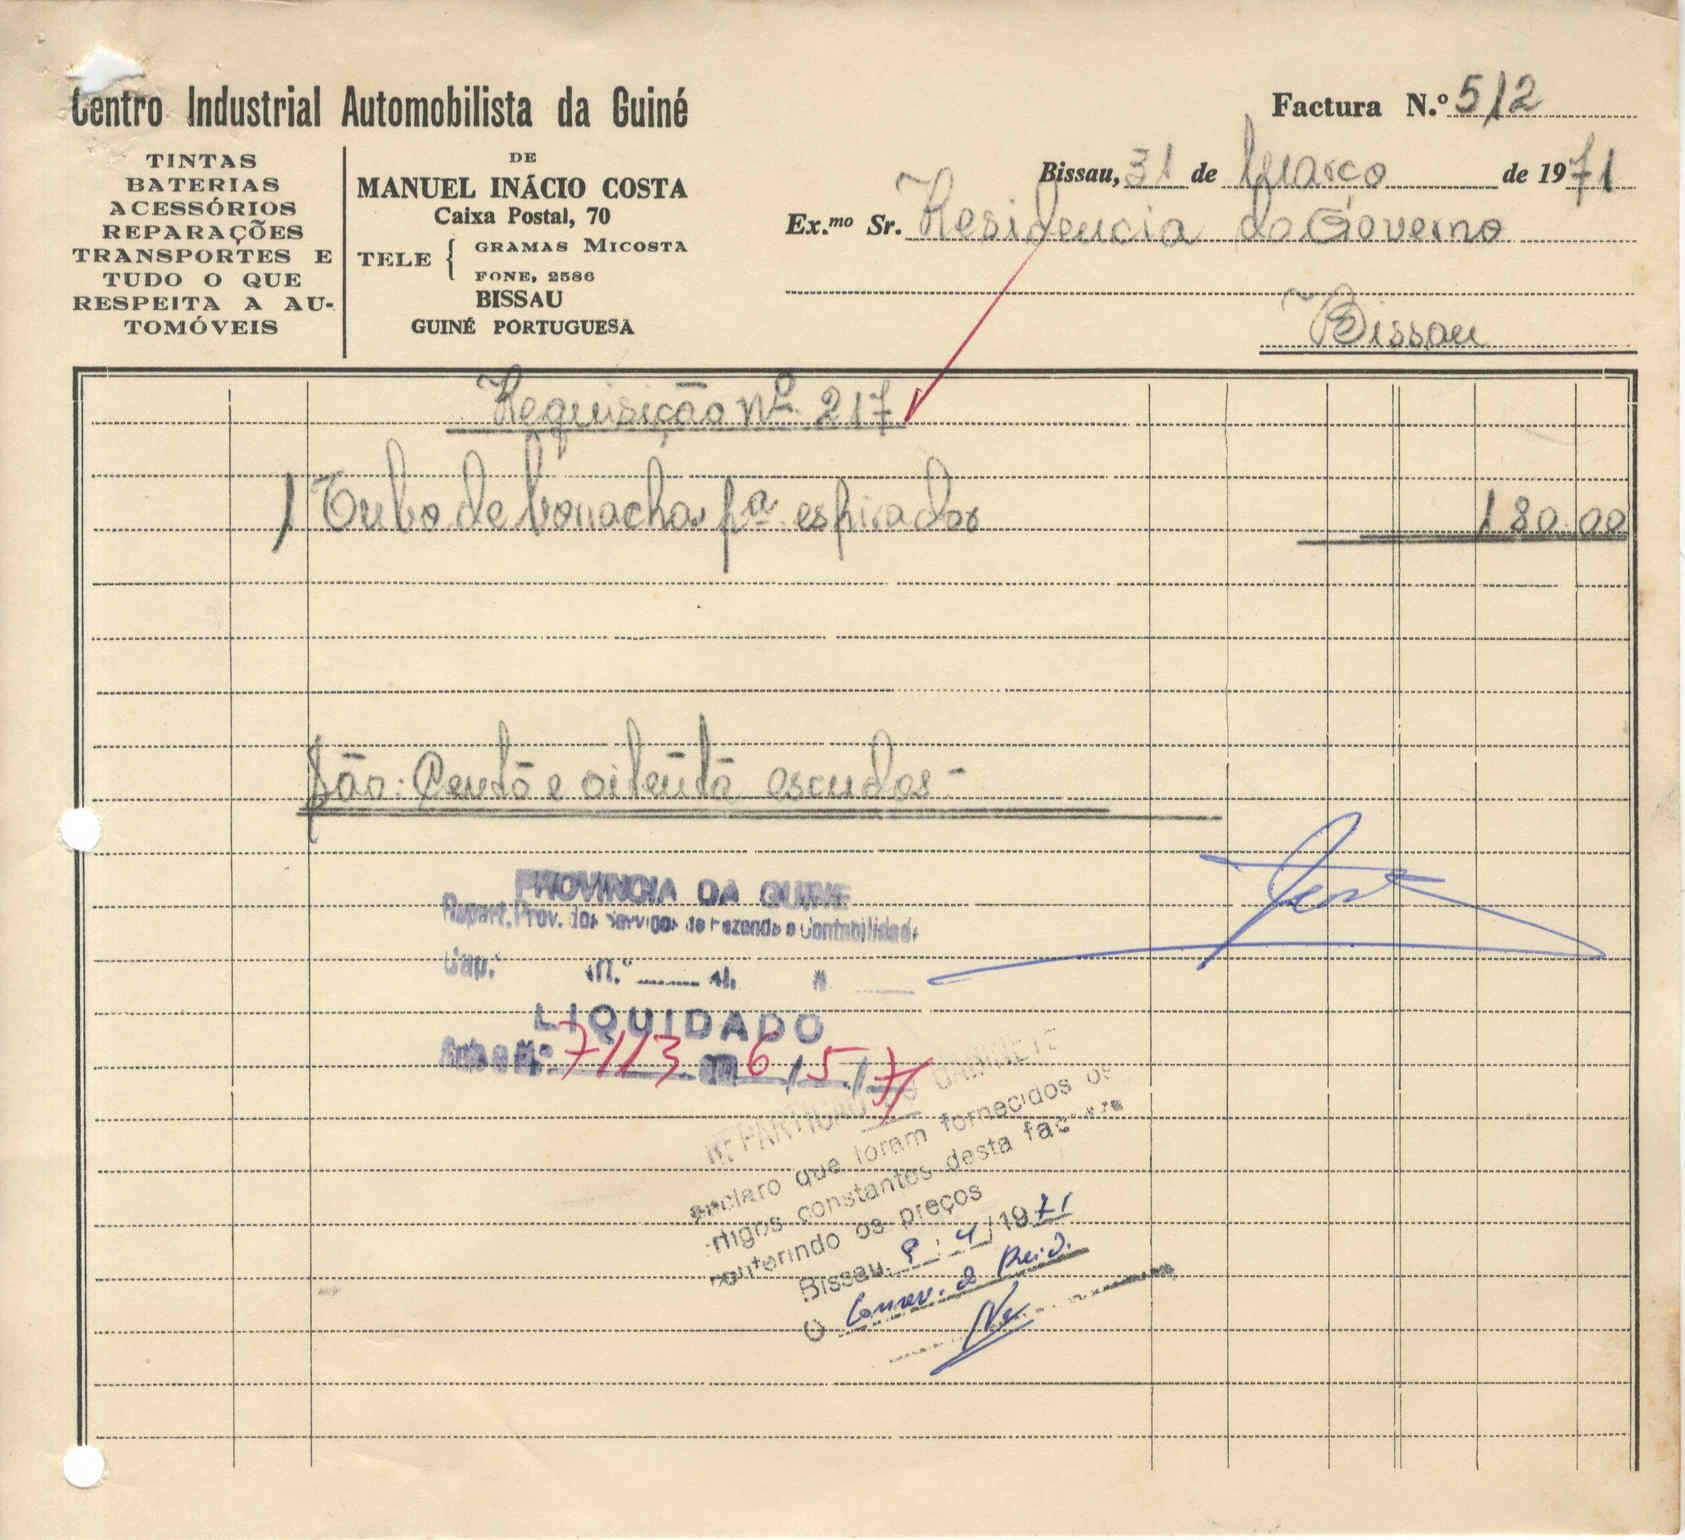 Centro Industrial Automobilista da Guiné
TINTAS
BATERIAS
ACESSÓRIOS
REPARAÇÕES
TRANSPORTES E
TUDO O QUE
RESPEITA A AU-
TOMÓVEIS
DE
MANUEL INÁCIO COSTA
Caixa Postal, 70
TELE { GRAMAS MICOSTA
FONE, 2586
BISSAU
GUINÉ PORTUGUESA
Factura N.º 512
Bissau, 31 de Março de 1971
Ex.mo Sr. Residencia do Governo
Bissau
Requisição Nº 217
1 Tubo de borracha pª espirador 180.00
São: Cento e oitenta escudos-
PROVINCIA DA GUINÉ
Repart. Prov. dos Serviços de Fazenda e Contabilidade
Cap.º
LIQUIDADO
7113 6/5/71
REPARTIÇÃO DO GABINETE
Declaro que foram fornecidos os
artigos constantes desta factura
conferindo os preços
Bissau, 9/4/1971
O